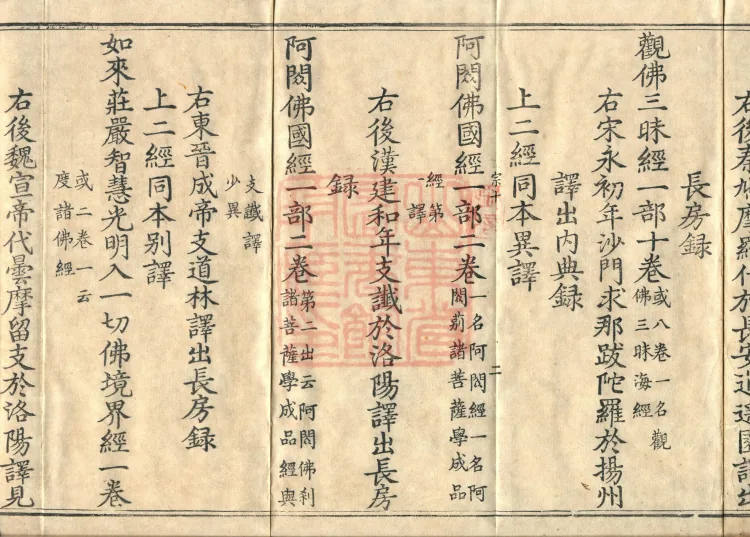 右後秦鳩摩羅什於長安逍遙園譯出
長房録
觀佛三昧經一部十卷 或八卷一名觀
佛三昧海經
右宋永初年沙門求那跋陀羅於揚州
譯出内典録
上二經同本異譯
宗十
二
阿閦佛國經一部二卷 一名阿閦經一名阿
閦刹諸菩薩學成品
經第
一譯
右後漢建和年支讖於洛陽譯出長房
録
阿閦佛國經一部二卷 第二出云阿閦佛刹
諸菩薩學成品經與
支讖譯
少異
右東晉成帝支道林譯出長房録
上二經同本別譯
如來莊嚴智慧光明入一切佛境界經一卷
或二卷一云
度諸佛經
右後魏宣帝代曇摩留支於洛陽譯見